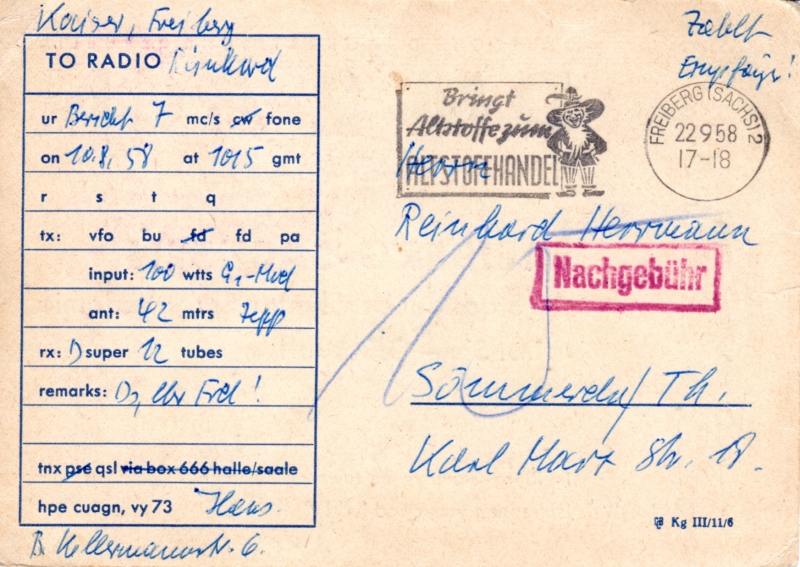 Kaiser, Freiberg
TO RADIO Reinhard
ur Bericht 7 mc/s cw fone
on 10.8.58 at 1015 gmt
r s t q
tx: vfo bu fd fd pa
input: 100 wtts G2-Mod
ant: 42 mtrs Zepp
rx: D super 12 tubes
remarks: Ds, lbr Frd!
tnx pse qsl via box 666 halle/saale
hpe cuagn, vy 73 Hans.
B. Kellermannstr. 6.
Zahlt
Empfänger!
Bringt
Altstoffe zum
ALTSTOFFHANDEL
FREIBERG (SACHS) 2
22 9 58
17-18
Herrn
Reinhard Herrmann
Nachgebühr
15
Sömmerda/Th.
Karl Marx Str. 18.
Kg III/11/6